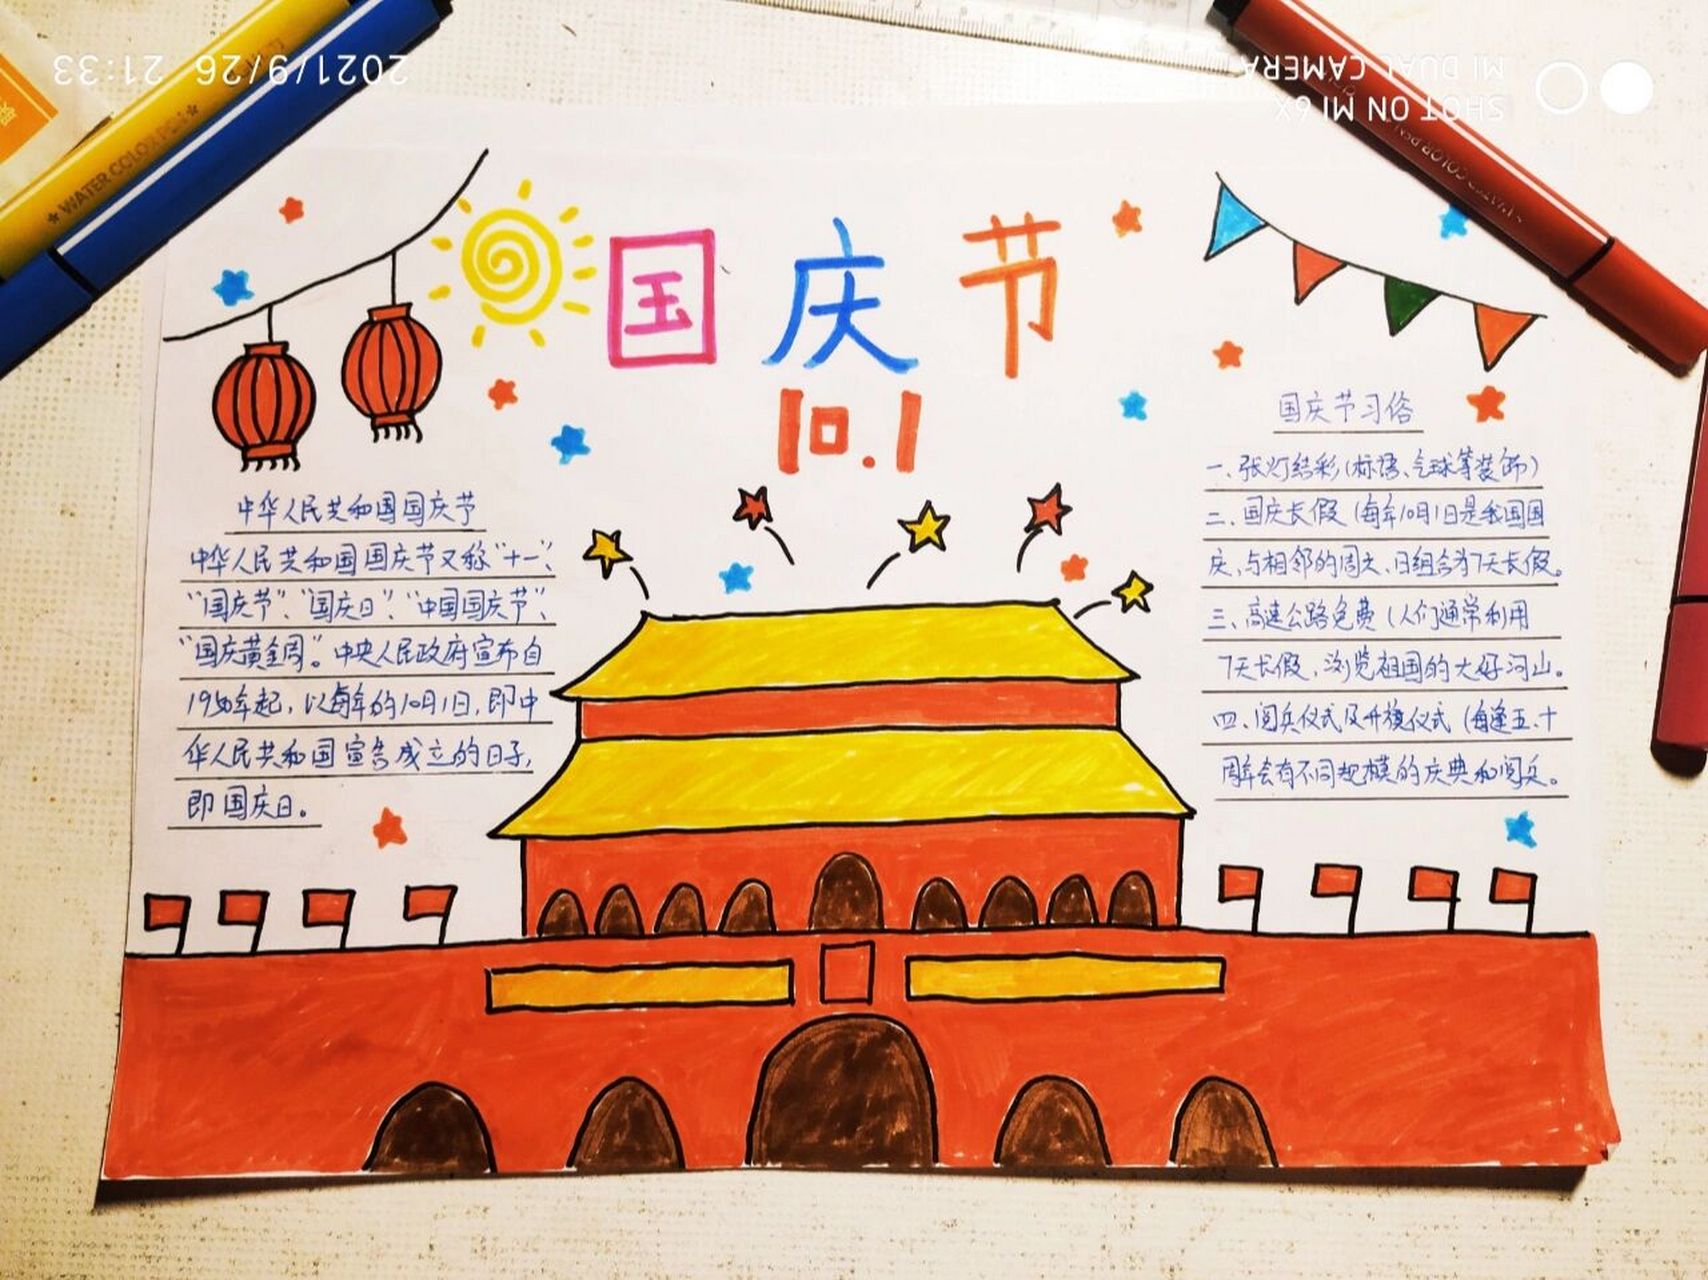 2021/9/26 21:33
SHOT ON MI 6X
MI DUAL CAMERA
WATER COLOR PEN
国庆节
10.1
中华人民共和国国庆节
中华人民共和国国庆节又称“十一”、
“国庆节”、“国庆日”、“中国国庆节”、
“国庆黄金周”。中央人民政府宣布自
1950年起，以每年的10月1日，即中
华人民共和国宣告成立的日子，
即国庆日。
国庆节习俗
一、张灯结彩（标语、气球等装饰）
二、国庆长假（每年10月1日是我国国
庆，与相邻的周六、日组合为7天长假。
三、高速公路免费（人们通常利用
7天长假，浏览祖国的大好河山。
四、阅兵仪式及升旗仪式（每逢五、十
周年会有不同规模的庆典和阅兵。